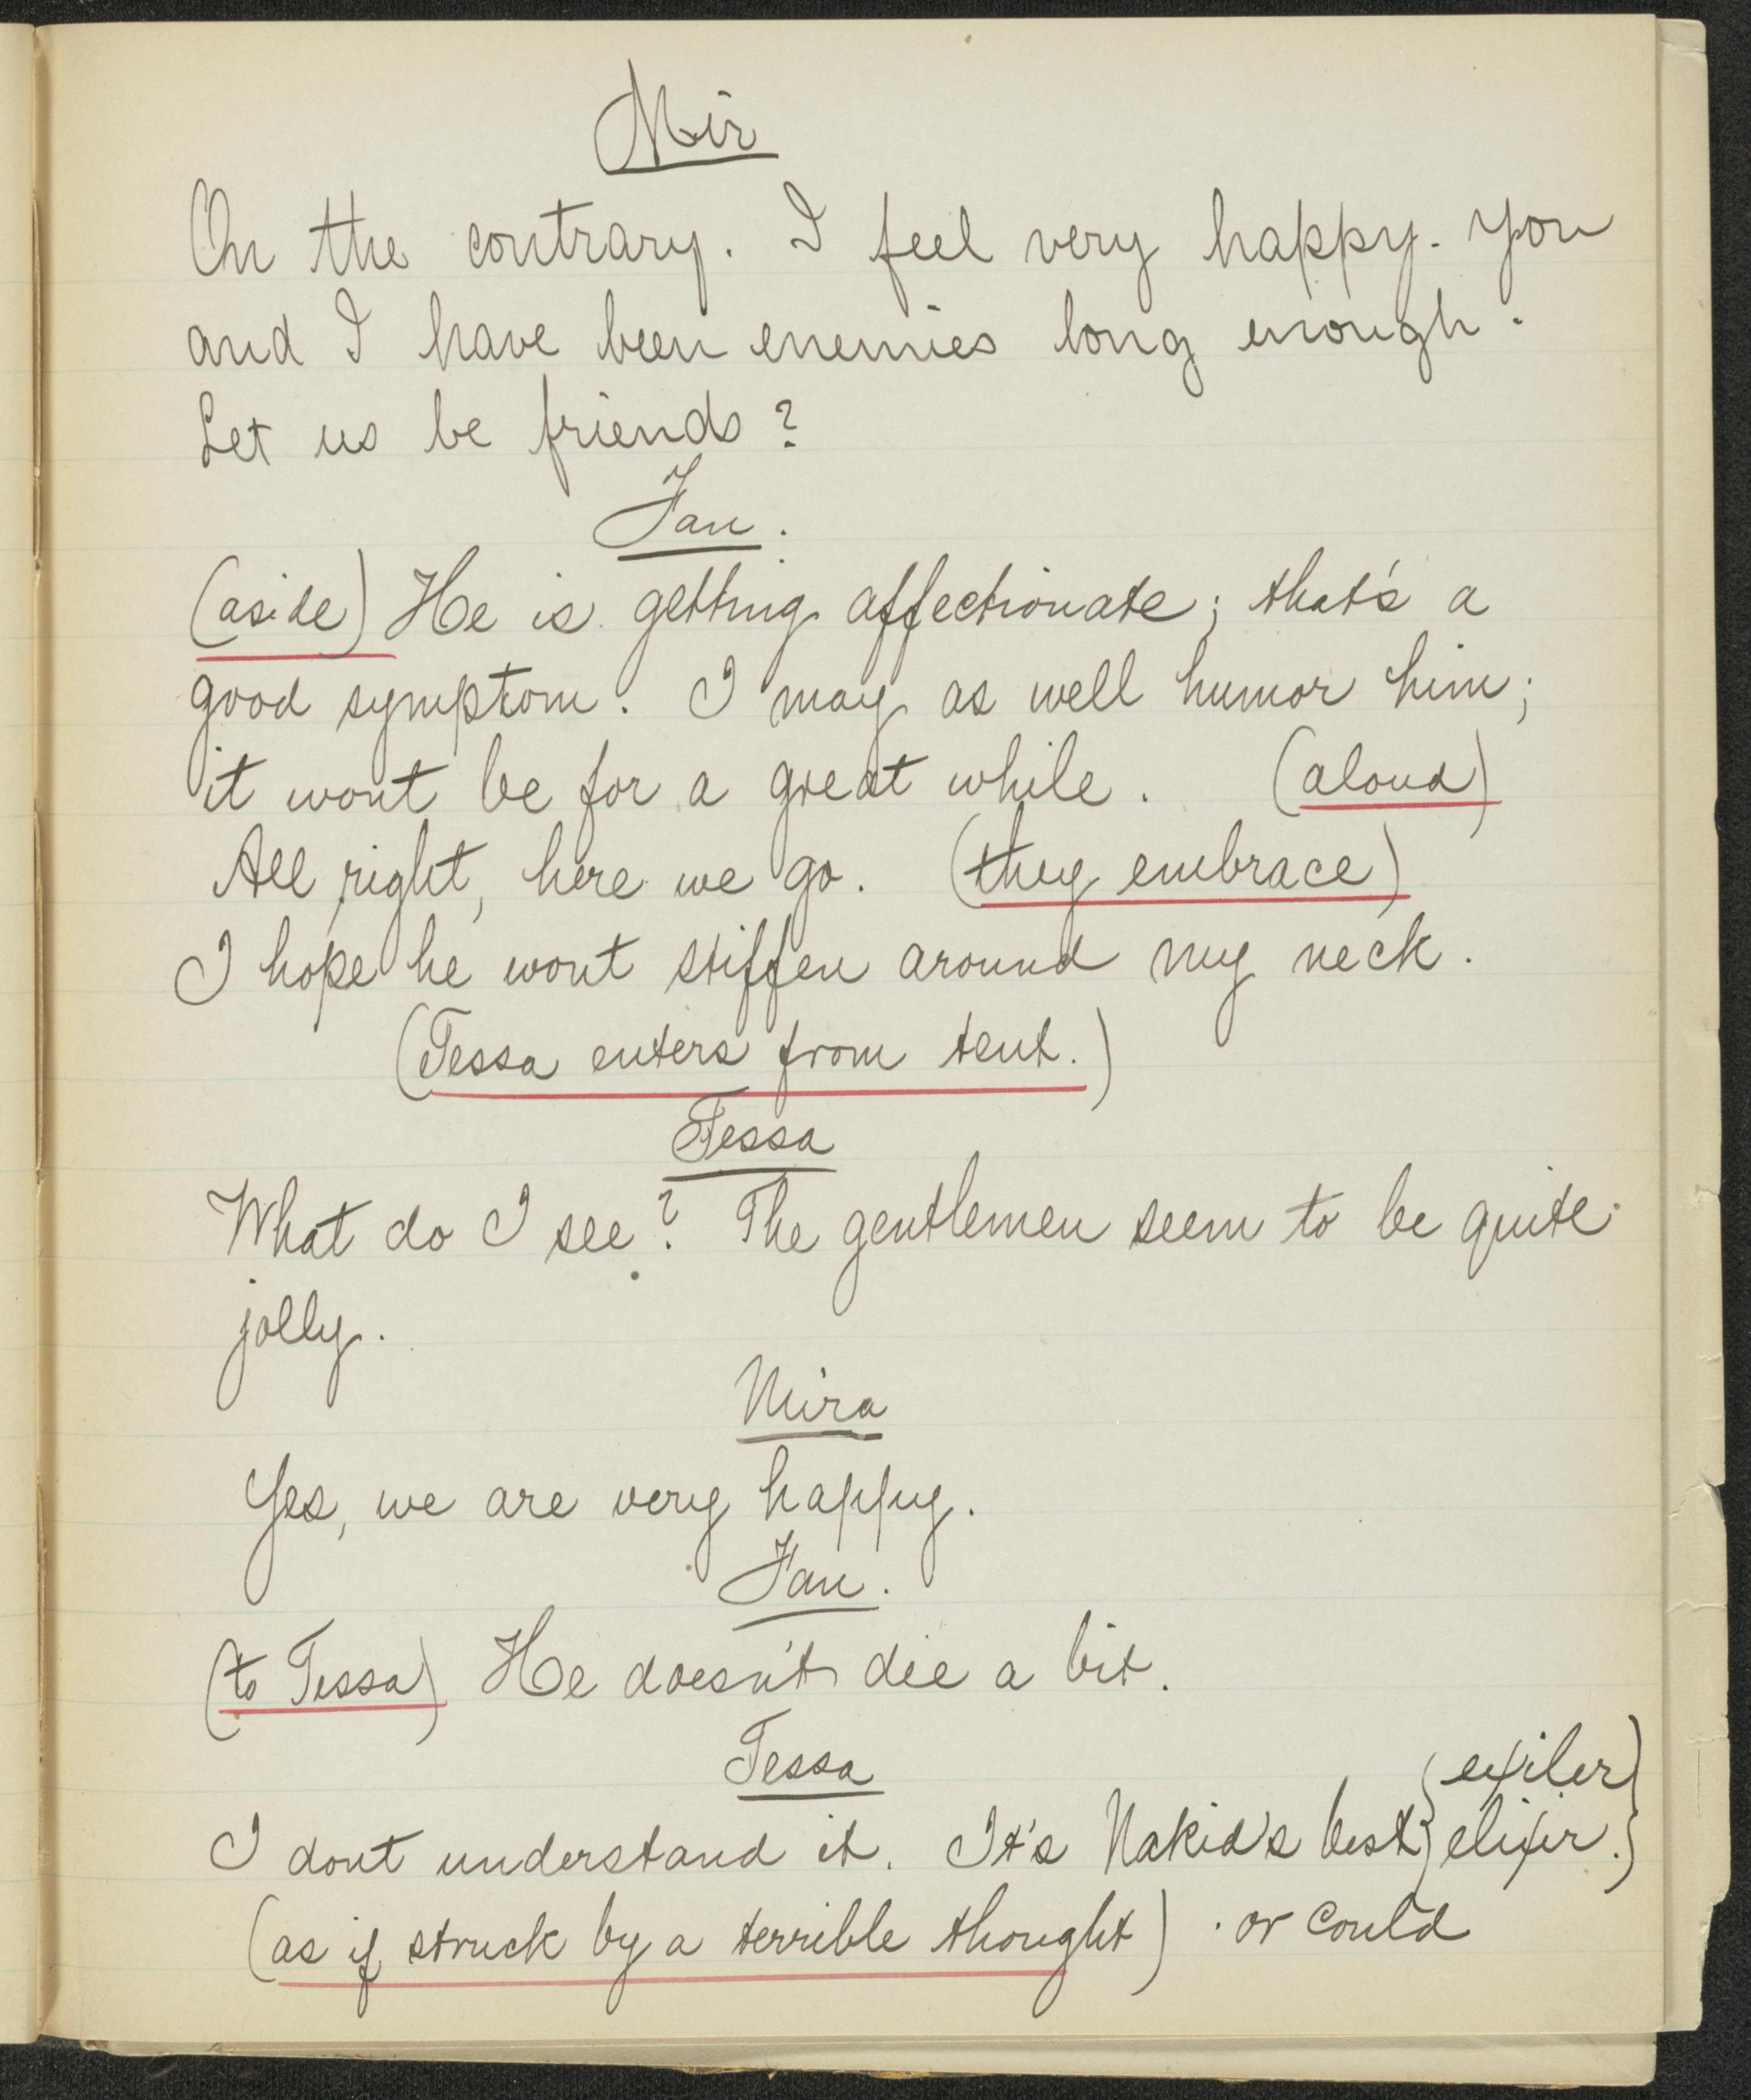 Mir
On the contrary. I feel very happy. You
and I have been enemies long enough.
Let us be friends?
Fan.
(aside) He is getting affectionate; that's a
good symptom. I may as well humor him;
it wont be for a great while. (aloud)
All right, here we go. (they embrace)
I hope he wont stiffen around my neck.
(Tessa enters from tent.)
Tessa
What do I see? The gentlemen seem to be quite
jolly.
Mira
Yes, we are very happy.
Fan.
(to Tessa) He doesn't die a bit.
Tessa
(exiler)
I dont understand it. It's Nakid's best {elixir.}
(as if struck by a terrible thought) . or could